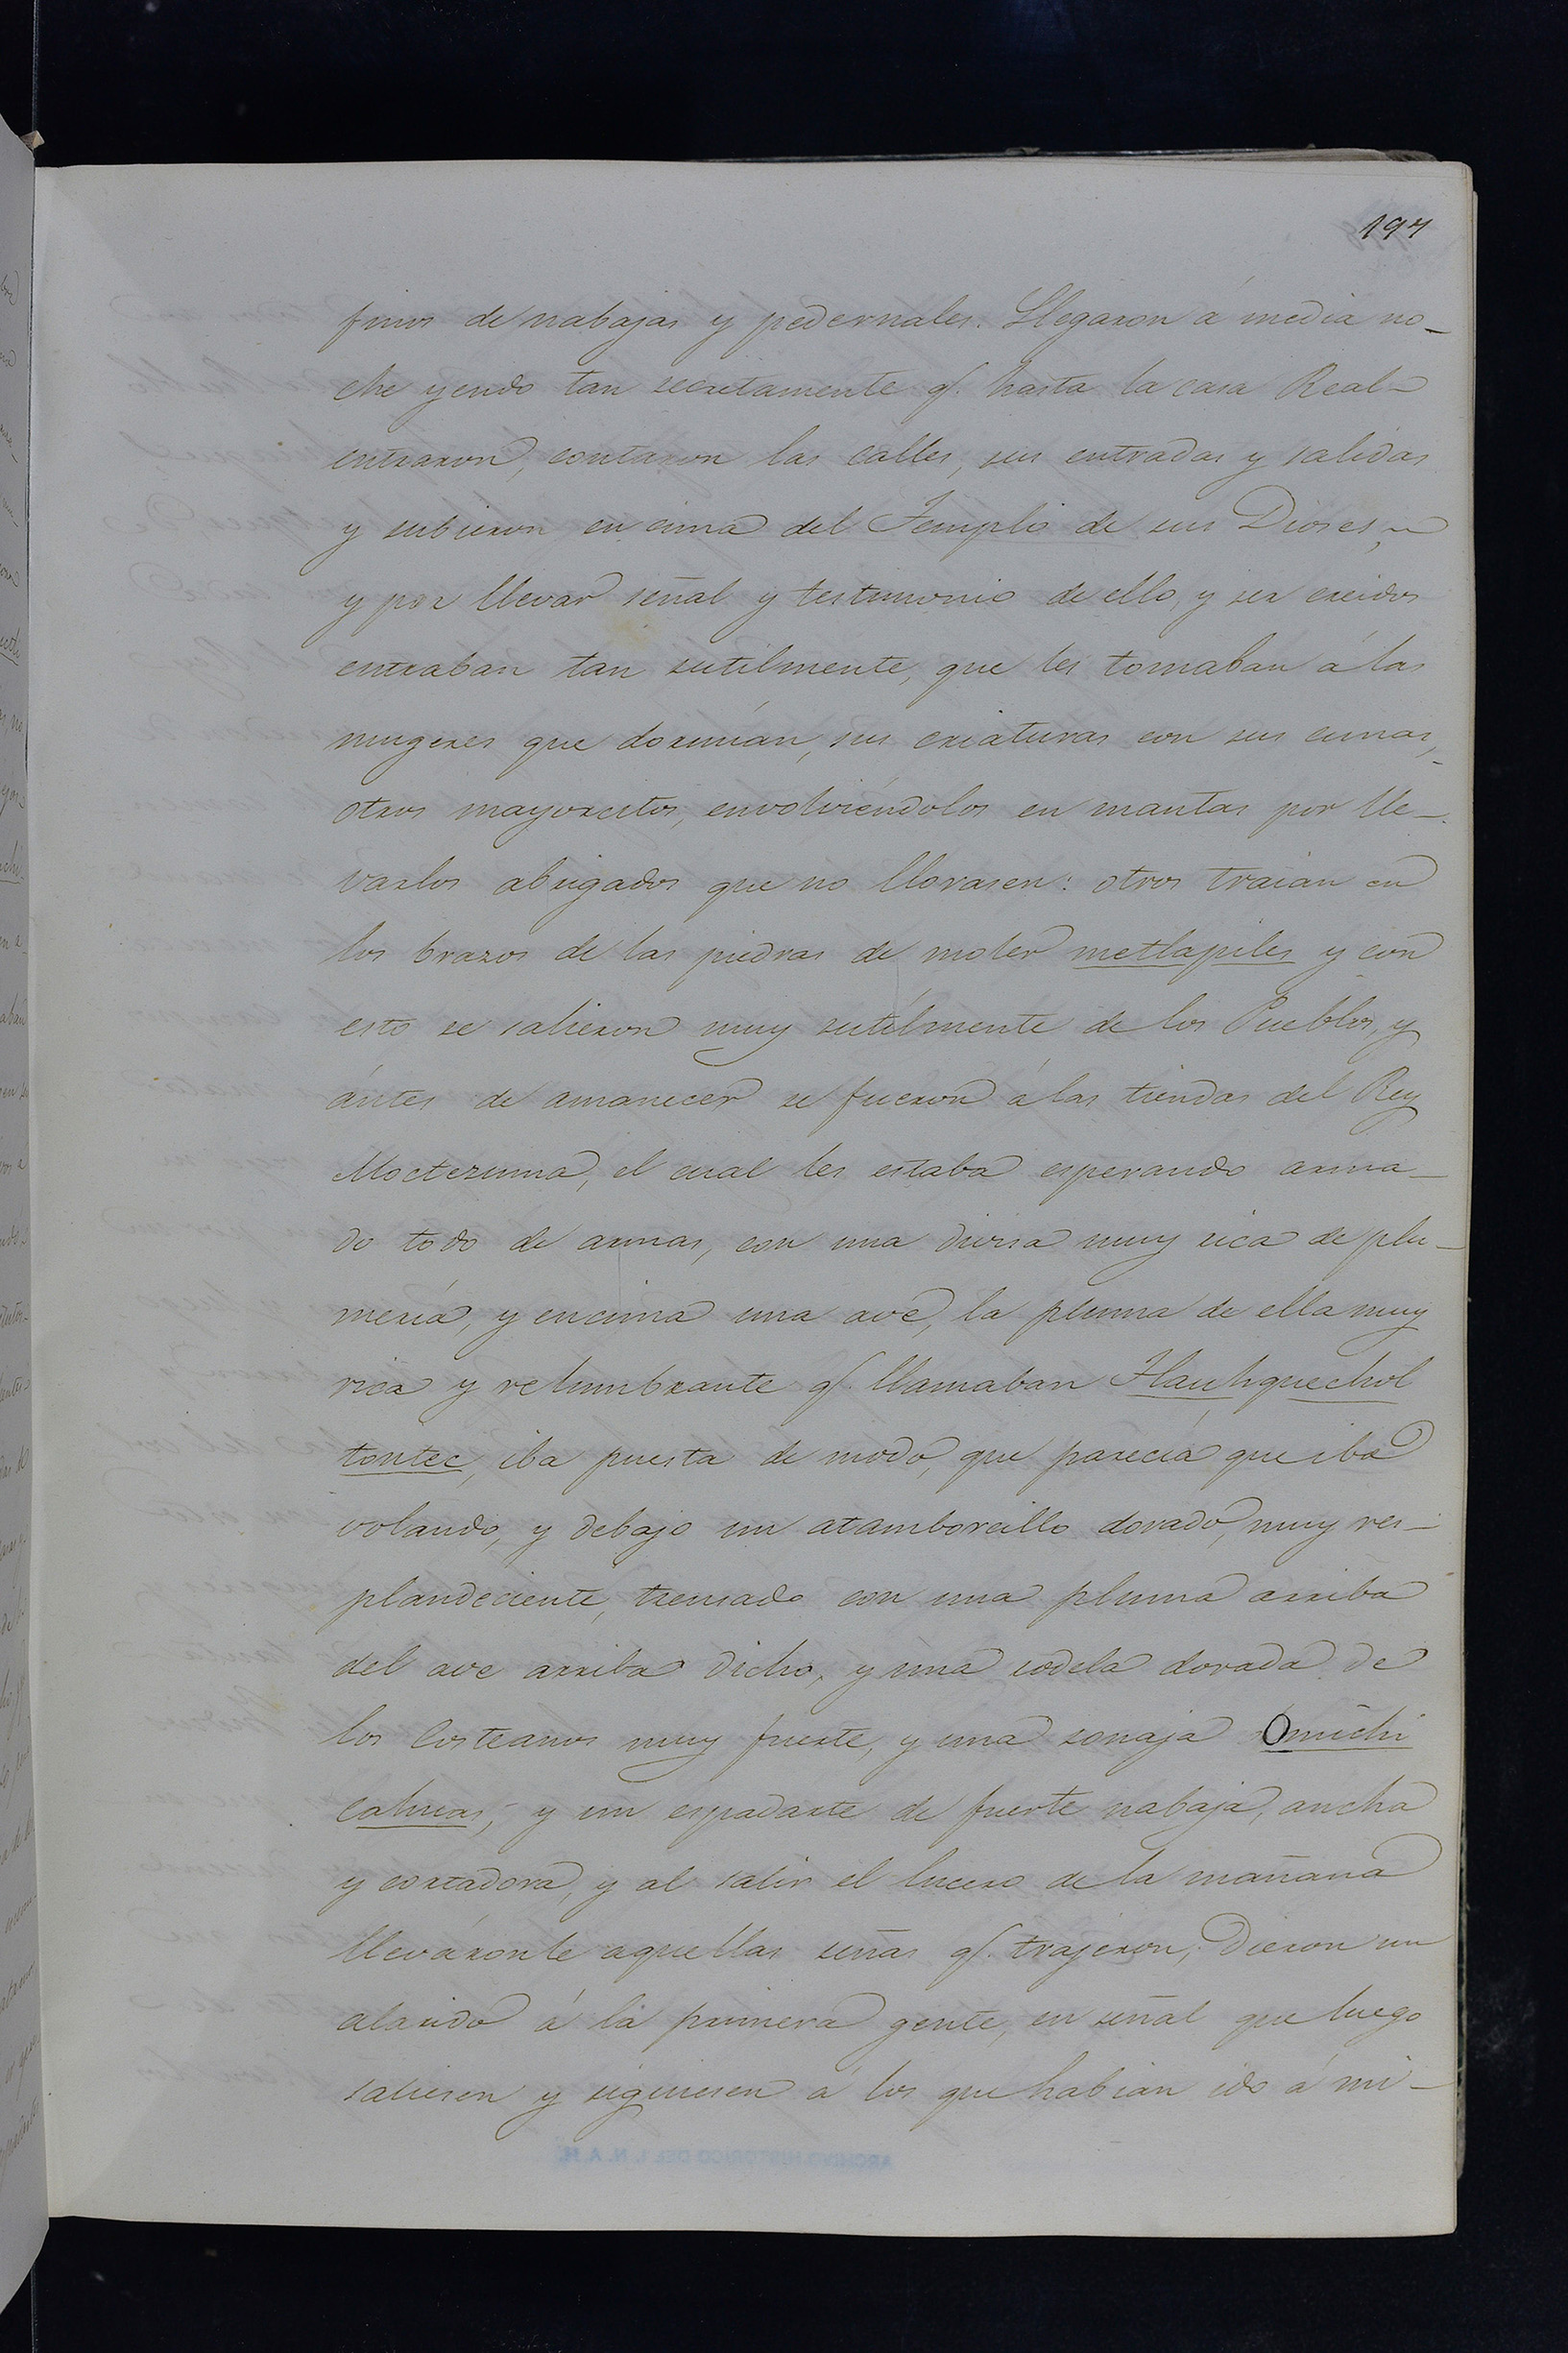 197
finos de nabajas y pedernales. Llegaron á media no-
che yendo tan secretamente q. hasta la casa Real
entraron, contaron las calles, sus entradas y salidas
y subieron en cima del Templo de sus Dioses,
y por llevar señal y testimonio de ello, y ser creidos
entraban tan sutilmente, que les tomaban á las
mugeres que dormían, sus criaturas con sus cunas,
otros mayorcitos, envolviéndolos en mantas por lle-
varlos abrigados que no llorasen: otros traian en
los brazos de las piedras de moler metlapiles y con
esto se salieron muy sutilmente de los Pueblos, y
ántes de amanecer se fueron á las tiendas del Rey
Moctezuma, el cual les estaba esperando arma-
do todo de armas, con una divisa muy rica de plu-
mería, y encima una ave, la pluma de ella muy
rica y relumbrante q. llamaban Tlauhquechol
tontec, iba puesta de modo, que parecía que iba
volando, y debajo un atamborcillo dorado, muy res-
plandeciente, trensado con una pluma arriba
del ave arriba dicho, y una rodela dorada de
los Costeanos muy fuerte, y una sonaja Omichi
cahuas, y un espadarte de fuerte nabaja, ancha
y cortadora, y al salir el lucero de la mañana
lleváronle aquellas señas q. trajeron, dieron un
alarido á la primera gente, en señal que luego
saliesen y siguiesen á los que habian ido á mi-
ARCHIVO HISTORICO DEL I. N. A. H.